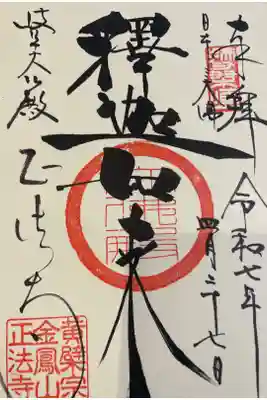 奉拝
日本三大佛
令和七年
四月二十七日
釋迦如来
大仏殿
正法寺
黄檗宗
金鳳山
正法寺